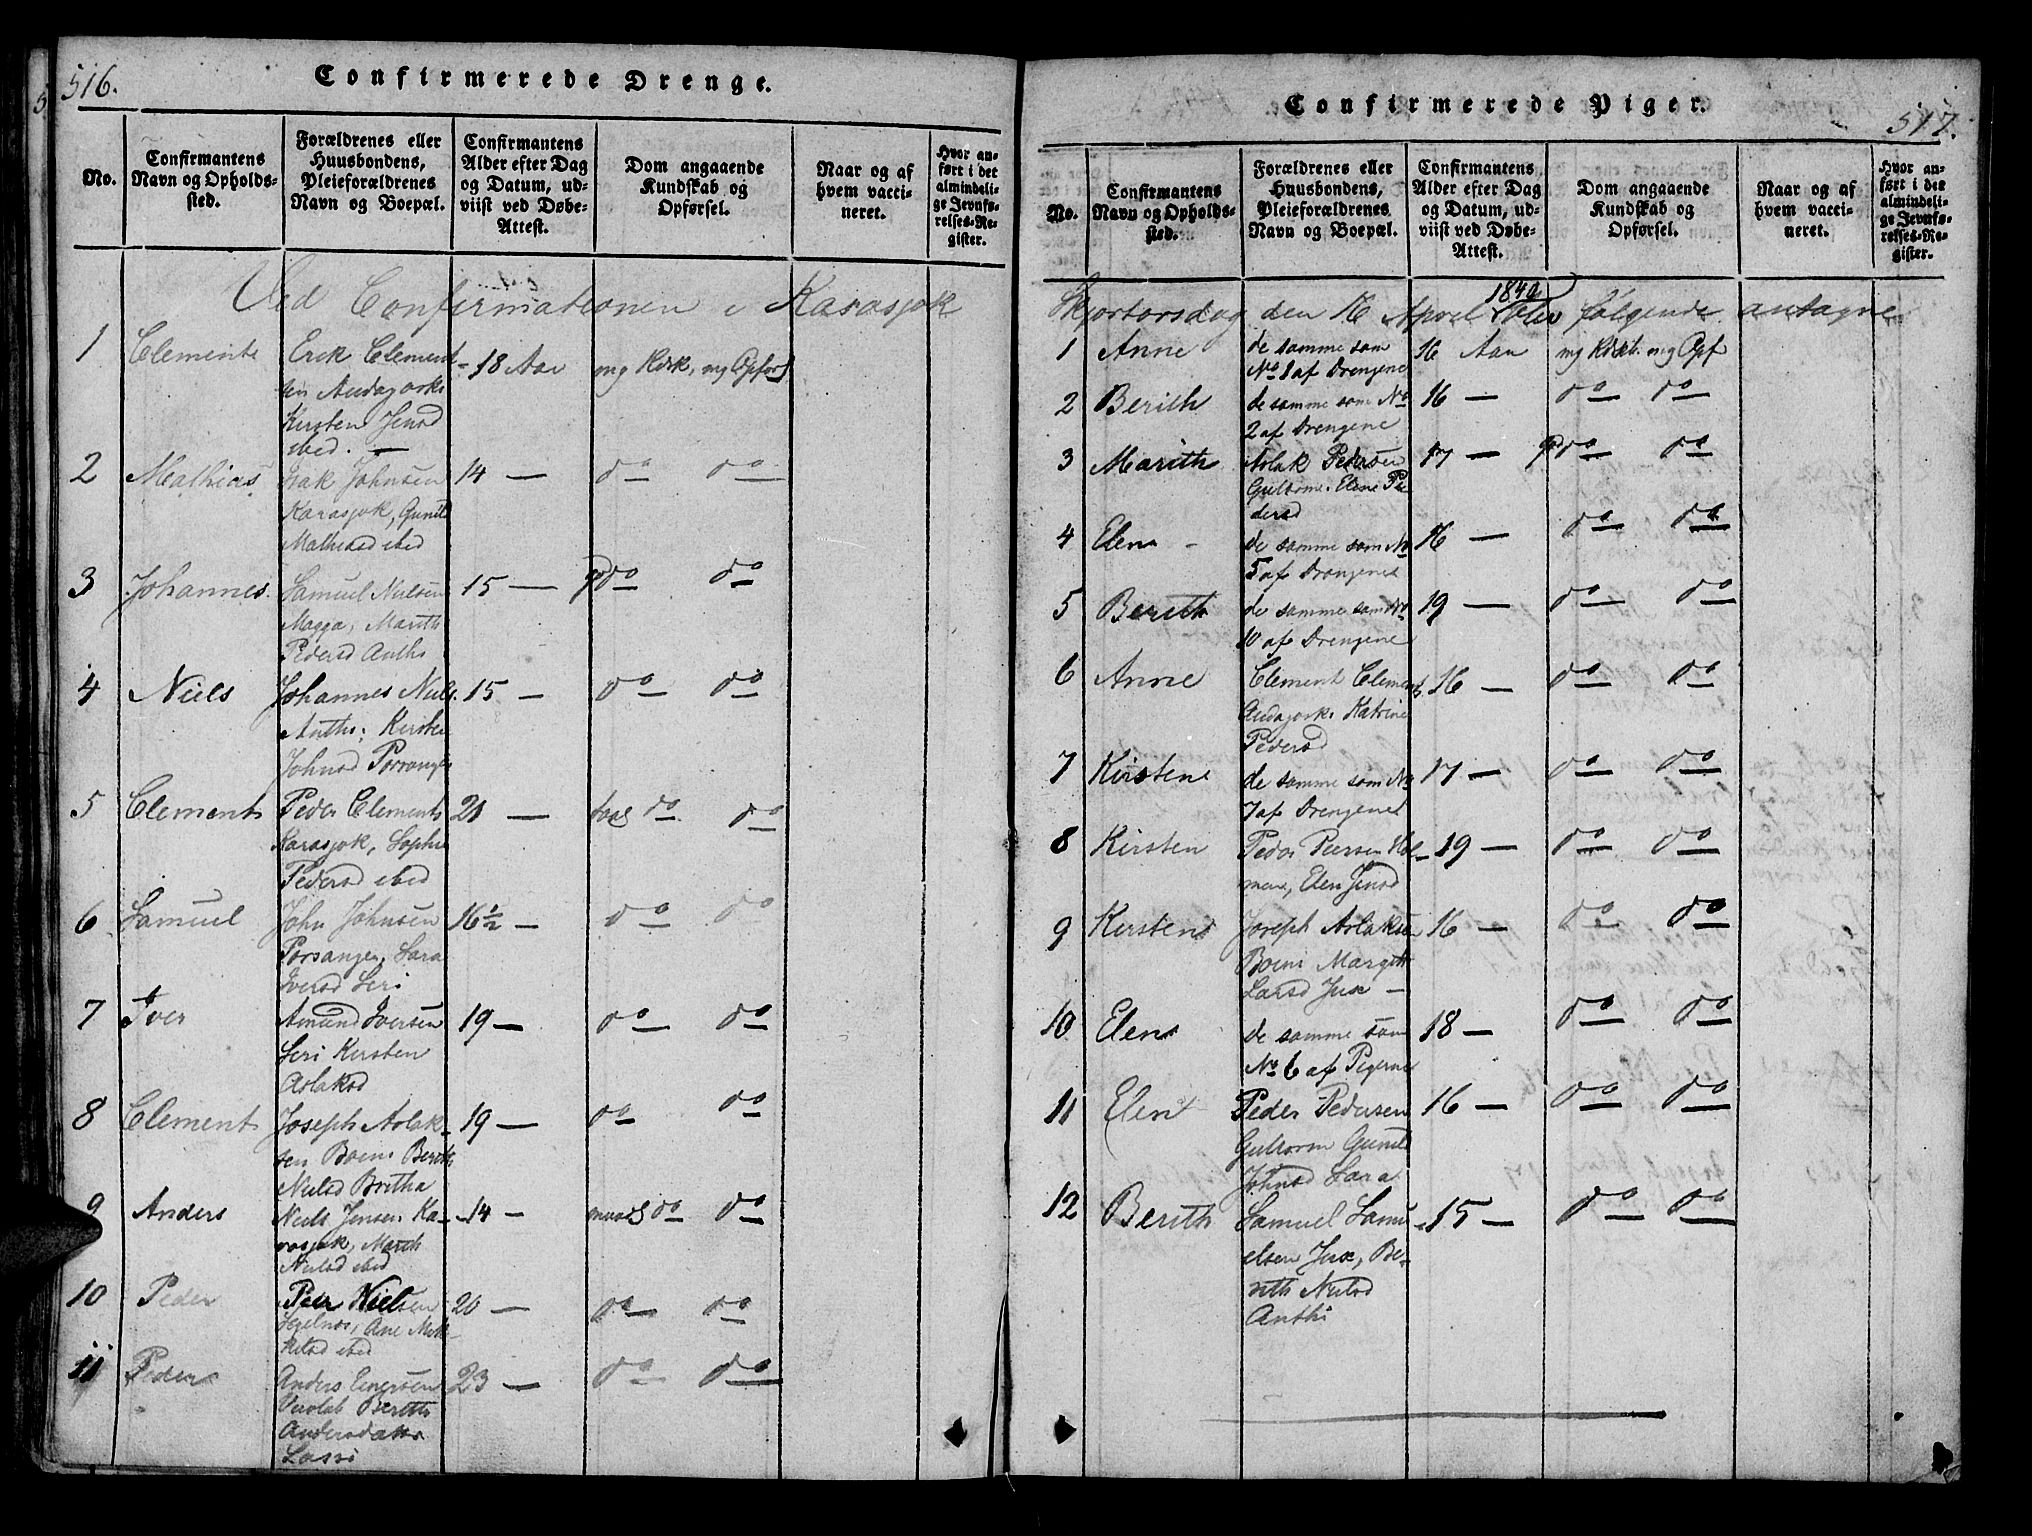 516.
Confirmerede Drenge.
No.
Confirmantens
Navn og Opholds-
sted.
Forældrenes eller
Huusbondens,
Pleieforældrenes
Navn og Boepæl.
Confirmantens
Alder efter Dag
og Datum, ud-
viist ved Døbe-
Attest.
Dom angaaende
Kundskab og
Opførsel.
Naar og af
hvem vacci-
neret.
Hvor an-
ført i det
almindeli-
ge Jevnfø-
relses-Re-
gister.
Ved Confirmationen i Karasjok
1 Clemente
Erik Clement-
sen
Kirsten Jensd
ibed. —
18 Aar
mg Kdsk, mg Opførs
2 Mathias
Isak Johnsen
Karasjok, Gunil
Mathisd ibed
14 —
do do
3 Johannes
Samuel Nielsen
Magga, Marith
Pedersd Anthi
15 —
gd do do
4 Niels
Johannes Niels
Anthi, Kirsten
Johnsd Porsanger
15 —
do do
5 Clement
Peder Clements
Karasjok, Sophie
Pedersd ibed
21 —
do do
6 Samuel
John Johnsen
Porsanger, Sara
Iversd Seri
16½ —
do do
7 Iver
Amund Iversen
Seri Kirsten
Aslaksd
19 —
do do
8 Clement
Joseph Aslak-
sen Boeni Berith
Nielsd Britha
19 —
do do
9 Anders
Niels Jensen Ka-
rasjok, Marith
Nielsd ibed
14 —
maadl do do
10 Peder
Peer Nielsen
Ane Mik-
kelsd ibed
20 —
do do
11 Peder
Anders Enersen
Berith
Andersdatter
Lassi
23 —
do do
517.
Confirmerede Piger.
No.
Confirmantens
Navn og Opholds-
sted.
Forældrenes eller
Huusbondens,
Pleieforældrenes
Navn og Boepæl.
Confirmantens
Alder efter Dag
og Datum, ud-
viist ved Døbe-
Attest.
Dom angaaende
Kundskab og
Opførsel.
Naar og af
hvem vacci-
neret.
Hvor an-
ført i det
almindeli-
ge Jevnfø-
relses-Re-
gister.
1840
Skjertorsdag den 16 April blev følgende antagne
1 Anne
de samme som
No 1 af Drengene
16 Aar
mg Kdsk. mg Opf
2 Berith
de samme som No
2 af Drengene
16 —
do do
3 Marith
Aslak Pedersen
Guttorm. Elene Pe
dersd
17 —
gd do do
4 Elen
de samme som No
5 af Drengene
16 —
do do
5 Berith
de samme som No
10 af Drengene
19 —
do do
6 Anne
Clement Clements
Katrine
Pedersd
16 —
do do
7 Kirstene
de samme som No
7 af Drengene
17 —
do do
8 Kirsten
Peder Peersen Hol-
mene, Elen Jensd
19 —
do do
9 Kirstene
Joseph Aslaksen
Boeni Margith
Larsd Jux —
16 —
do do
10 Elen
de samme som
No 6 af Pigerne
18 —
do do
11 Elen
Peder Pedersen
Guttorm Gunil
Johnsd Sara
16 —
do do
12 Berith
Samuel Samu-
elsen Jux, Be-
rith Nielsd
Anthi
15 —
do do